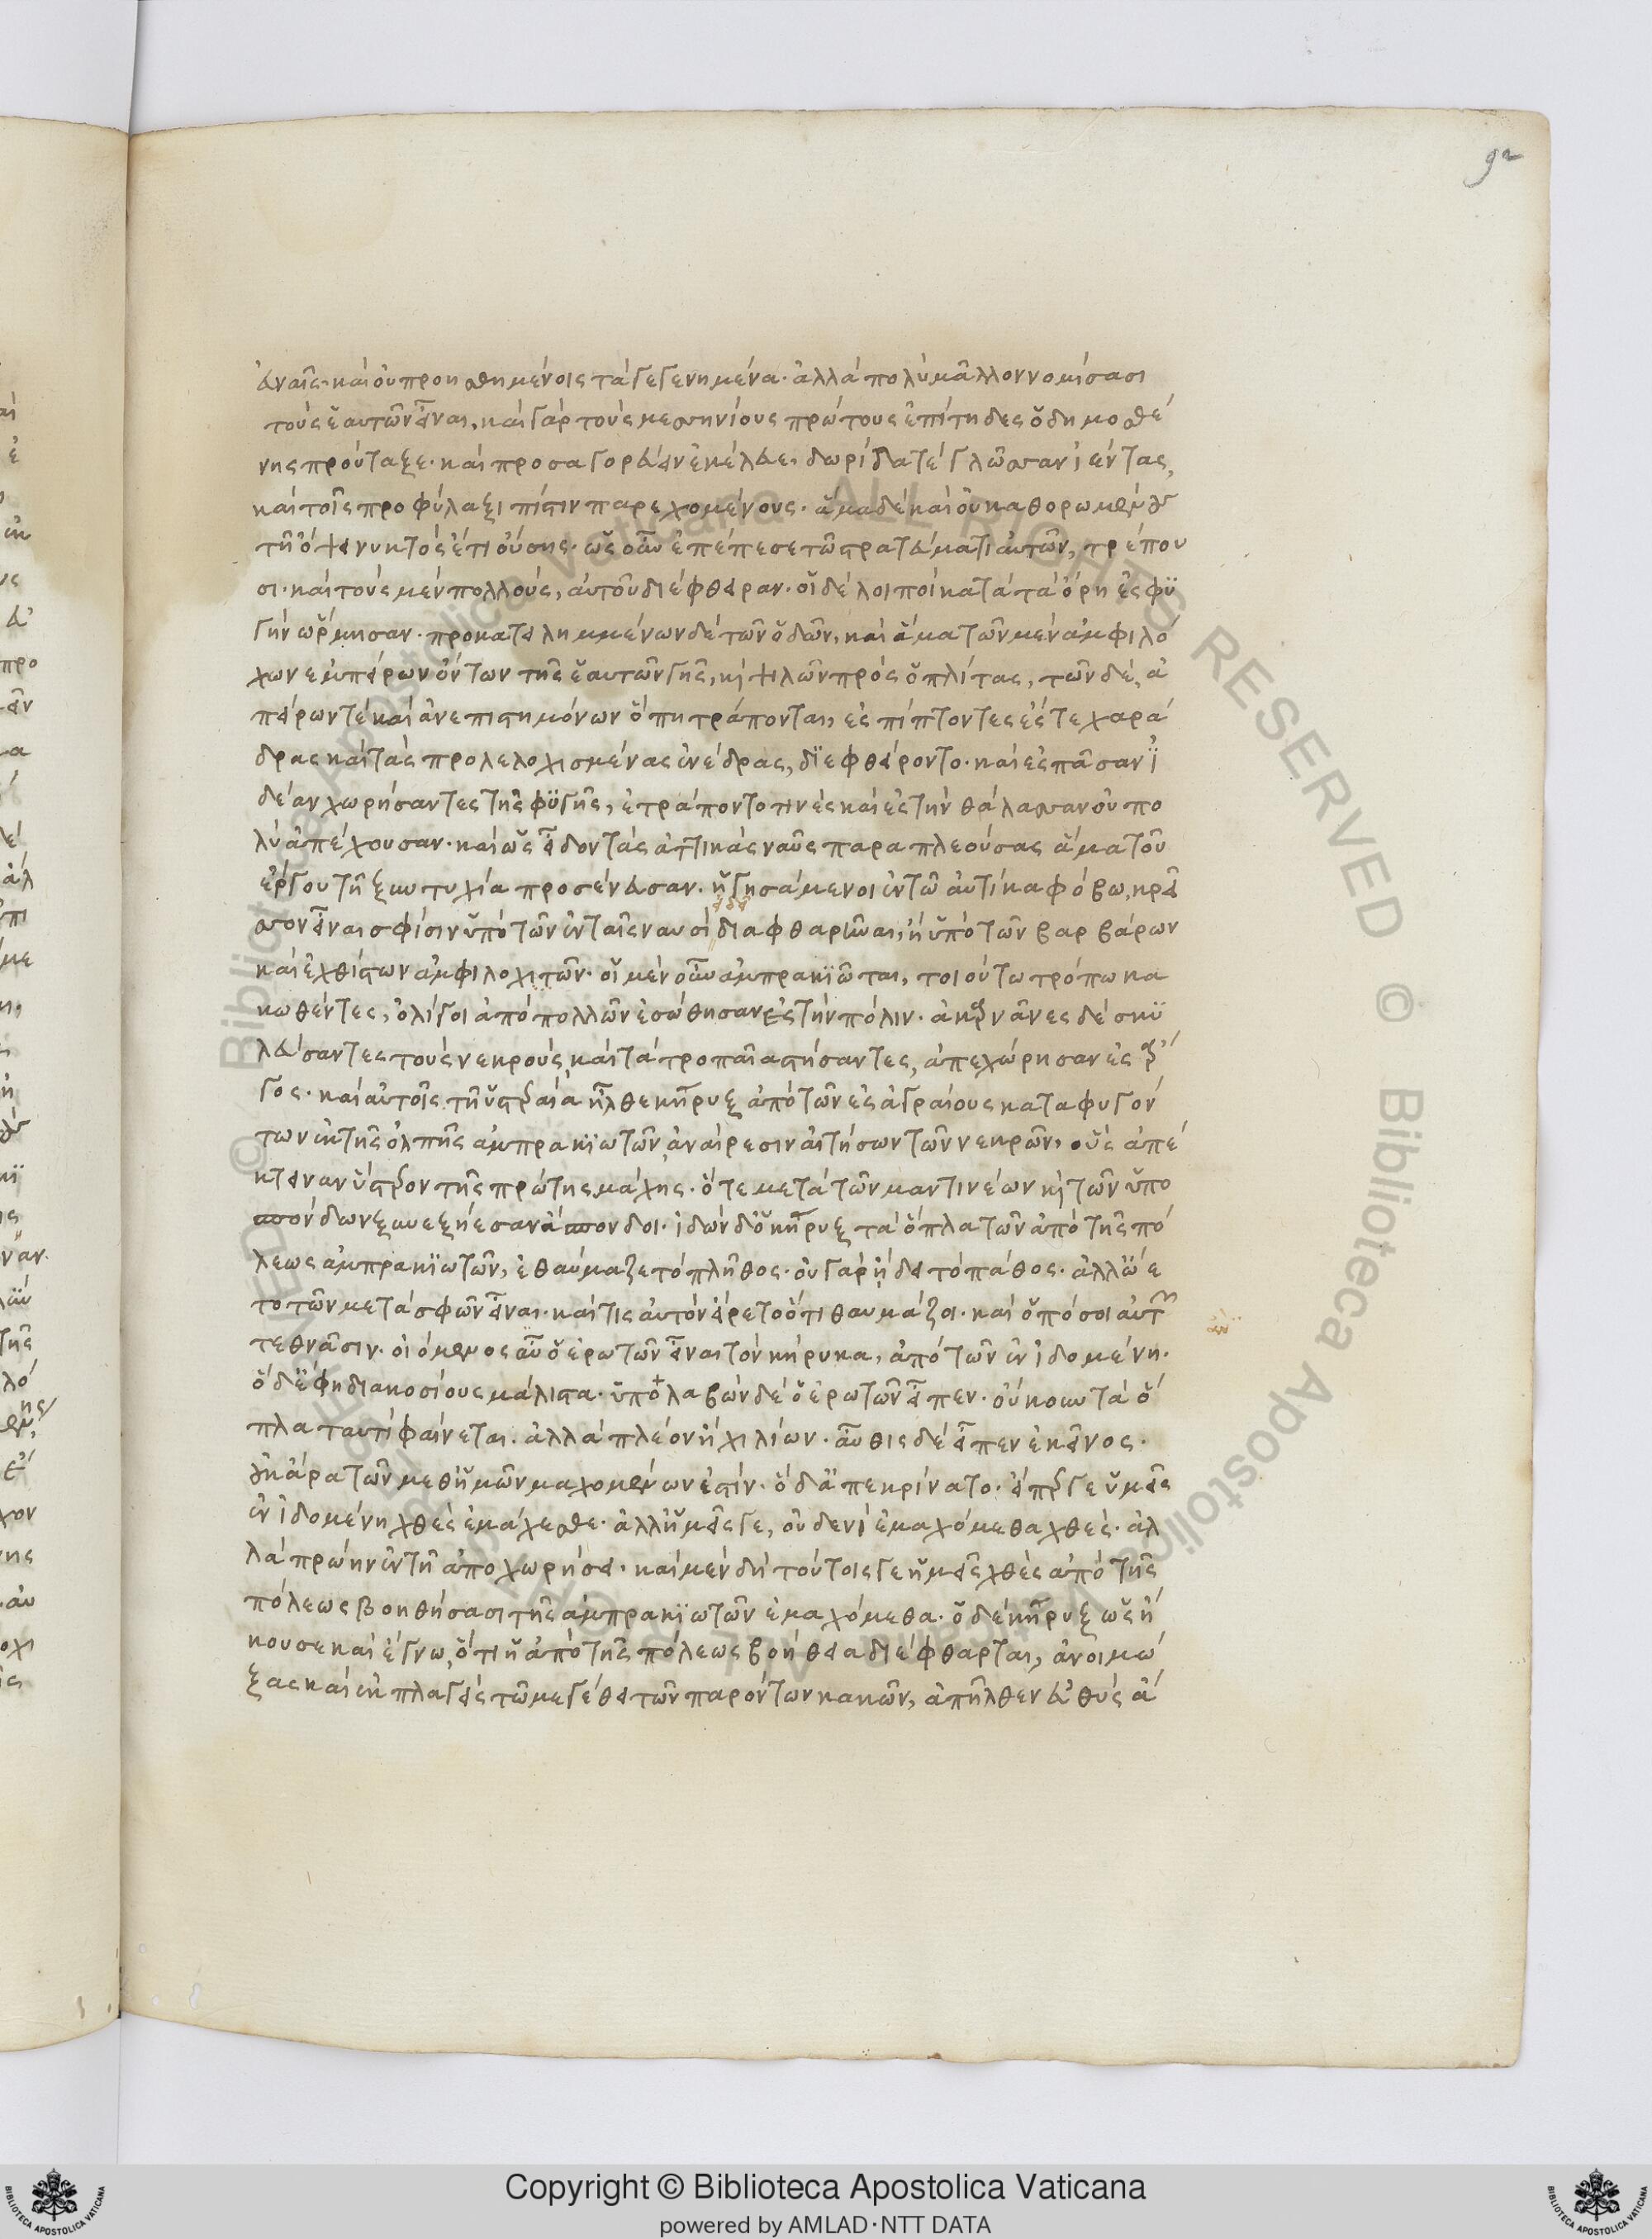 92
εὐναῖς· καὶ οὐ προησθημένοις τὰ γεγενημένα· ἀλλὰ πολὺ μᾶλλον νομίσασι
τοὺς ἑαυτῶν εἶναι, καὶ γὰρ τοὺς μεσσηνίους πρώτους ἐπίτηδες ὁ δημοσθέ
νης προύταξε· καὶ προσαγορεύειν ἐκέλευε, δωρίδα τὲ γλῶσσαν ἱέντας,
καὶ τοῖς προφύλαξι πίστιν παρεχομένους· ἅμα δὲ καὶ οὐ καθορωμένους
τῇ ὄψει νυκτὸς ἔτι οὔσης· ὡς οὖν ἐπέπεσε τῶ στρατεύματι αὐτῶν, τρέπου
σι· καὶ τοὺς μὲν πολλοὺς, αὐτοῦ διέφθειραν· οἱ δὲ λοιποὶ κατὰ τὰ ὄρη ἐς φϋ
γὴν ὥρμησαν· προκατειλημμένων δὲ τῶν ὁδῶν, καὶ ἅμα τῶν μὲν ἀμφιλό
χων ἐμπείρων ὄντων τῆς ἑαυτῶν γῆς, κὶ ψιλῶν πρὸς ὁπλίτας, τῶν δὲ, ἀ
πείρων τὲ καὶ ἀνεπιστημόνων ὅπη τράπονται, ἐς πίπτοντες ἐς τε χαρά
δρας καὶ τὰς προλελοχισμένας ἐνέδρας, δϊεφθείροντο· καὶ ἐς πᾶσαν ἰ
δέαν χωρήσαντες τῆς φϋγῆς, ἐτράποντο τινὲς καὶ ἐς τὴν θάλασσαν οὐ πο
λὺ ἀπέχουσαν· καὶ ὡς εἶδον τὰς ἀττικὰς ναῦς παραπλεούσας ἅμα τοῦ
ἔργου τῇ ξυντυχία προσένευσαν· ἡγησάμενοι ἐν τῶ αὐτίκα φόβω, κρεῖ
σσον εἶναι σφίσιν ὑπὸ τῶν ἐν ταῖς ναυσὶ διαφθαρῆναι, ἢ ὑπὸ τῶν βαρβάρων
καὶ ἐχθίστων ἀμφιλοχιτῶν· οἱ μὲν οὖν ἀμπρακϊῶται, τοιούτω τρόπω κα
κωθέντες, ὀλίγοι ἀπὸ πολλῶν ἐσώθησαν ἐς τὴν πόλιν· ἀκαρνᾶνες δὲ σκϋ
λεύσαντες τοὺς νεκροὺς, καὶ τὰ τροπαῖα στήσαντες, ἀπεχώρησαν ἐς ἄρ
γος· καὶ αὐτοῖς τῇ ὑστεραία ἦλθε κῆρυξ ἀπὸ τῶν ἐς ἀγραίους καταφυγόν
των ἐκ τῆς ὄλπης ἀμπρακϊωτῶν, ἀναίρεσιν αἰτήσων τῶν νεκρῶν, οὓς ἀπέ
κτειναν ὕστερον τῆς πρώτης μάχης· ὅτε μετὰ τῶν μαντινέων κὶ τῶν ὑπο
σπόνδων ξυνεξήεσαν ἄσπονδοι· ἰδὼν δ' ὁ κῆρυξ τὰ ὅπλα τῶν ἀπὸ τῆς πό
λεως ἀμπρακϊωτῶν, ἐθαύμαζε τὸ πλῆθος· οὐ γὰρ ἤδει τὸ πάθος· ἀλλ' ὤιε
το τῶν μετὰ σφῶν εἶναι· καί τις αὐτὸν ἤρετο ὅτι θαυμάζοι· καὶ ὁπόσοι αὐτῶν
τεθνᾶσιν· οἰόμενος αὖ ὁ ἐρωτῶν εἶναι τὸν κήρυκα, ἀπὸ τῶν ἐν ἰδομένη·
ὁ δ' ἔφη διακοσίους μάλιστα· ὑπολαβὼν δὲ ὁ ἐρωτῶν εἶπεν· οὔκουν τὰ ὅ
πλα ταυτὶ φαίνεται. ἀλλὰ πλέον ἢ χιλίων· αὖθις δὲ εἶπεν ἐκεῖνος·
οὐκ ἄρα τῶν μεθ' ἡμῶν μαχομένων ἐστίν· ὁ δ' ἀπεκρίνατο· εἴπερ γε ὑμεῖς
ἐν ἰδομένη χθὲς ἐμάχεσθε· ἀλλ' ἡμεῖς γε, οὐδενὶ ἐμαχόμεθα χθὲς· ἀλ
λὰ πρώην ἐν τῇ ἀποχωρήσει· καὶ μὲν δὴ τούτοις γε ἡμεῖς χθὲς ἀπὸ τῆς
πόλεως βοηθήσασι τῆς ἀμπρακϊωτῶν ἐμαχόμεθα· ὁ δὲ κῆρυξ ὡς ἤ
κουσε καὶ ἔγνω, ὅτι ἡ ἀπὸ τῆς πόλεως βοήθεια διέφθαρται, ἀνοιμώ
ξας καὶ ἐκπλαγεὶς τῶ μεγέθει τῶν παρόντων κακῶν, ἀπῆλθεν εὐθὺς ἄ
© Biblioteca Apostolica Vaticana ALL RIGHTS RESERVED
Copyright © Biblioteca Apostolica Vaticana
powered by AMLAD·NTT DATA